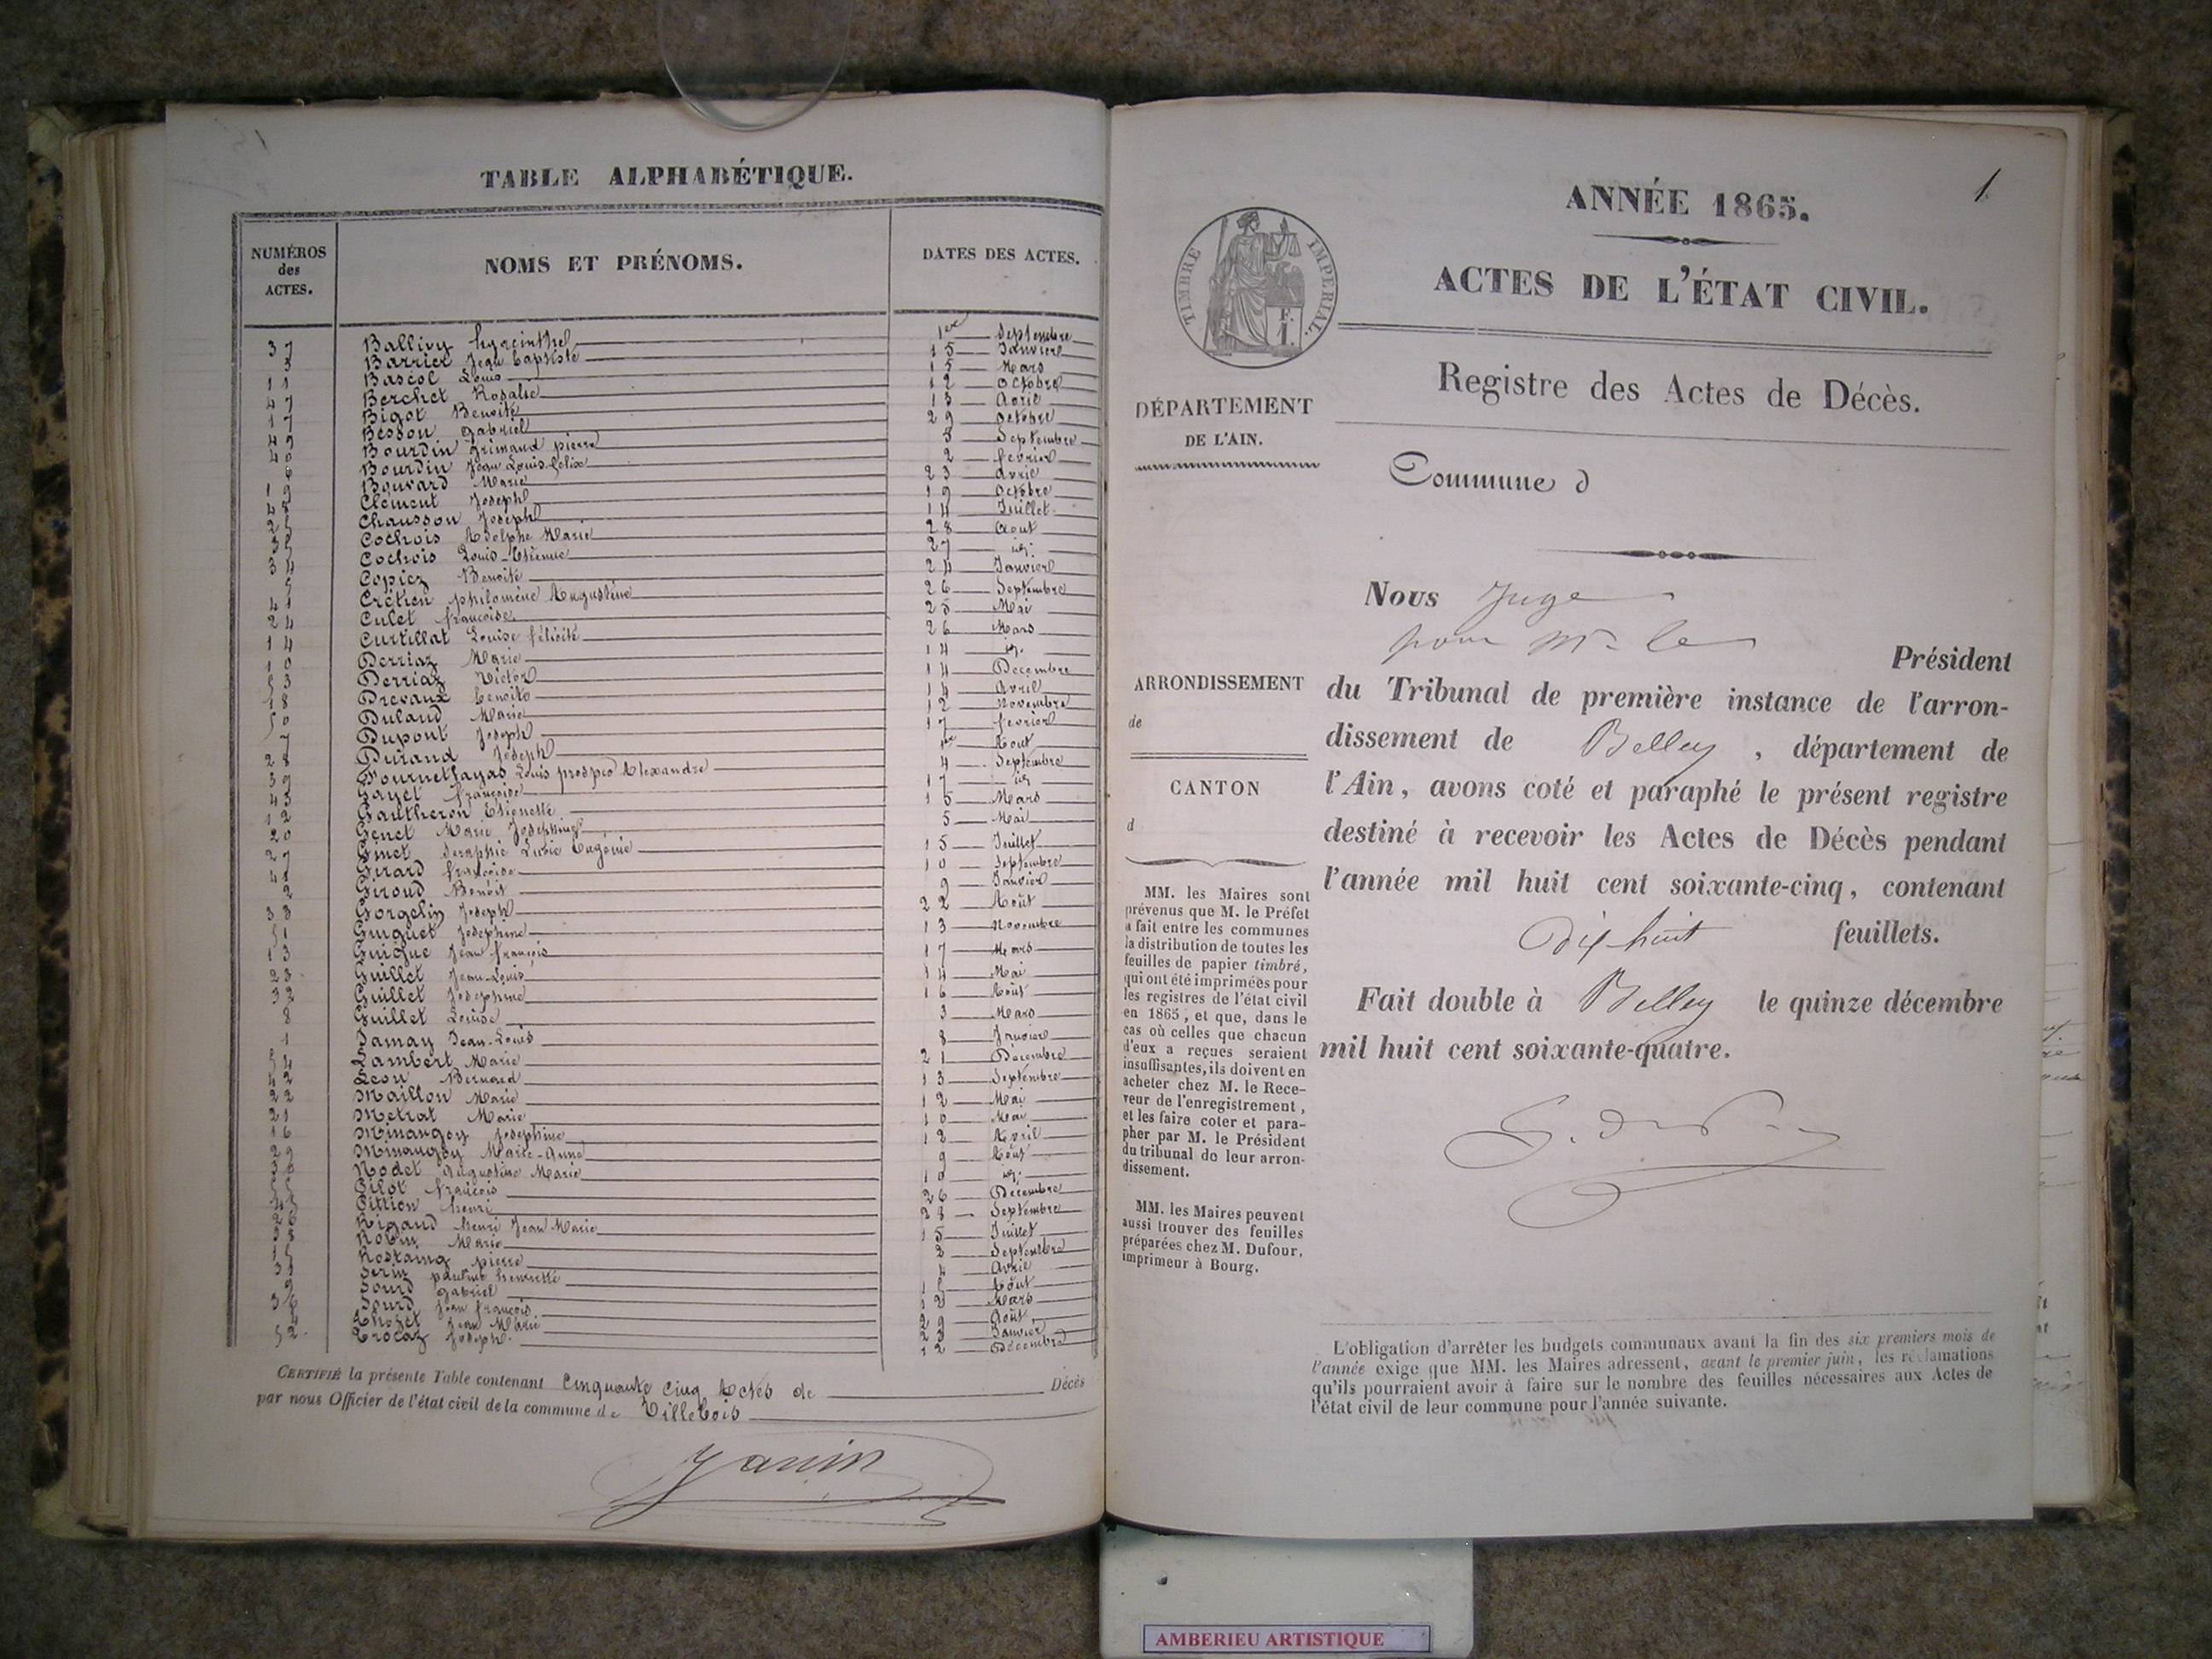 TABLE ALPHABÉTIQUE.
NUMÉROS des ACTES.
NOMS ET PRÉNOMS.
DATES DES ACTES.
37 Ballivy hyacinthe 1er Septembre
3 Barrier Jean baptiste 15 Janvier
11 Bascol Louis 15 Mars
47 Berchet Rosalie 12 Octobre
17 Bigot Benoîte 13 Avril
49 Besson Gabriel 29 Octobre
40 Bourdin Grimaud pierre 8 Septembre
6 Bourdin Jean Louis félix 2 fevrier
19 Bouvard Marie 23 Avril
48 Clément Joseph 19 Octobre
25 Chausson Joseph 14 Juillet
35 Cochois Adolphe Marie 28 Aout
34 Cochois Louis-Etienne 27 id.
5 Copiez Benoite 24 Janvier
41 Crétien philomène Augustine 26 Septembre
24 Culet françoise 25 Mai
14 Curtillat Louise félicité 26 Mars
10 Derriaz Marie 14 id.
53 Derriaz Victor 14 Decembre
18 Drevaux benoite 14 Avril
50 Duland Marie 12 Novembre
7 Dupont Joseph 17 fevrier
28 Durand Joseph 1er Aout
39 Fournet fayas Louis prosper Alexandre 4 Septembre
43 Gayet françoise 17 id
12 Gautheron Etiennette 15 Mars
20 Genet Marie Josephine 5 Mai
27 Ginet Seraphie Lucie Eugénie 15 Juillet
41 Girard françoise 10 Septembre
2 Giroud Benoit 9 Janvier
33 Gorgelin Joseph 22 Août
51 Guiguet Josephine 13 Novembre
13 Guigue Jean françois 17 Mars
23 Guillet Jean-Louis 14 Mai
32 Guillet Josephine 16 Août
8 Guillet Louise 3 Mars
1 Jamay Jean-Louis 8 Janvier
54 Lambert Marie 21 Decembre
42 Leon Bernard 13 Septembre
22 Maillon Marie 12 Mai
21 Metrat Marie 10 Mai
16 Minangoy Josephine 12 Avril
29 Minangoy Marie-Anne 9 Août
30 Nodet Augustine Marie 10 id.
55 Pilot françois 26 Decembre
45 Pittion henri 28 Septembre
26 Rigaud henri Jean Marie 15 Juillet
38 Robin Marie 3 Septembre
15 Rostaing pierre 4 Avril
31 Serin pauline henriette 15 Août
9 Sourd Gabriel 12 Mars
36 Sourd Jean françois 29 Août
4 Thozet Jean Marie 23 Janvier
52 Trocaz Joseph 12 Décembre
CERTIFIÉ la présente Table contenant Cinquante cinq Actes de Décès
par nous Officier de l'état civil de la commune de Villebois
Janin
1
ANNÉE 1865.
ACTES DE L'ÉTAT CIVIL.
TIMBRE IMPÉRIAL.
F.
1.
Registre des Actes de Décès.
DÉPARTEMENT
DE L'AIN.
Commune d
ARRONDISSEMENT
de
CANTON
d
MM. les Maires sont
prévenus que M. le Préfet
a fait entre les communes
la distribution de toutes les
feuilles de papier timbré,
qui ont été imprimées pour
les registres de l'état civil
en 1865, et que, dans le
cas où celles que chacun
d'eux a reçues seraient
insuffisantes, ils doivent en
acheter chez M. le Rece-
veur de l'enregistrement,
et les faire coter et para-
pher par M. le Président
du tribunal de leur arron-
dissement.
MM. les Maires peuvent
aussi trouver des feuilles
préparées chez M. Dufour,
imprimeur à Bourg.
Nous Juge
pour Mr le
Président
du Tribunal de première instance de l'arron-
dissement de Belley, département de
l'Ain, avons coté et paraphé le présent registre
destiné à recevoir les Actes de Décès pendant
l'année mil huit cent soixante-cinq, contenant
Dix huit feuillets.
Fait double à Belley le quinze décembre
mil huit cent soixante-quatre.
L'obligation d'arrêter les budgets communaux avant la fin des six premiers mois de
l'année exige que MM. les Maires adressent, avant le premier juin, les réclamations
qu'ils pourraient avoir à faire sur le nombre des feuilles nécessaires aux Actes de
l'état civil de leur commune pour l'année suivante.
AMBERIEU ARTISTIQUE